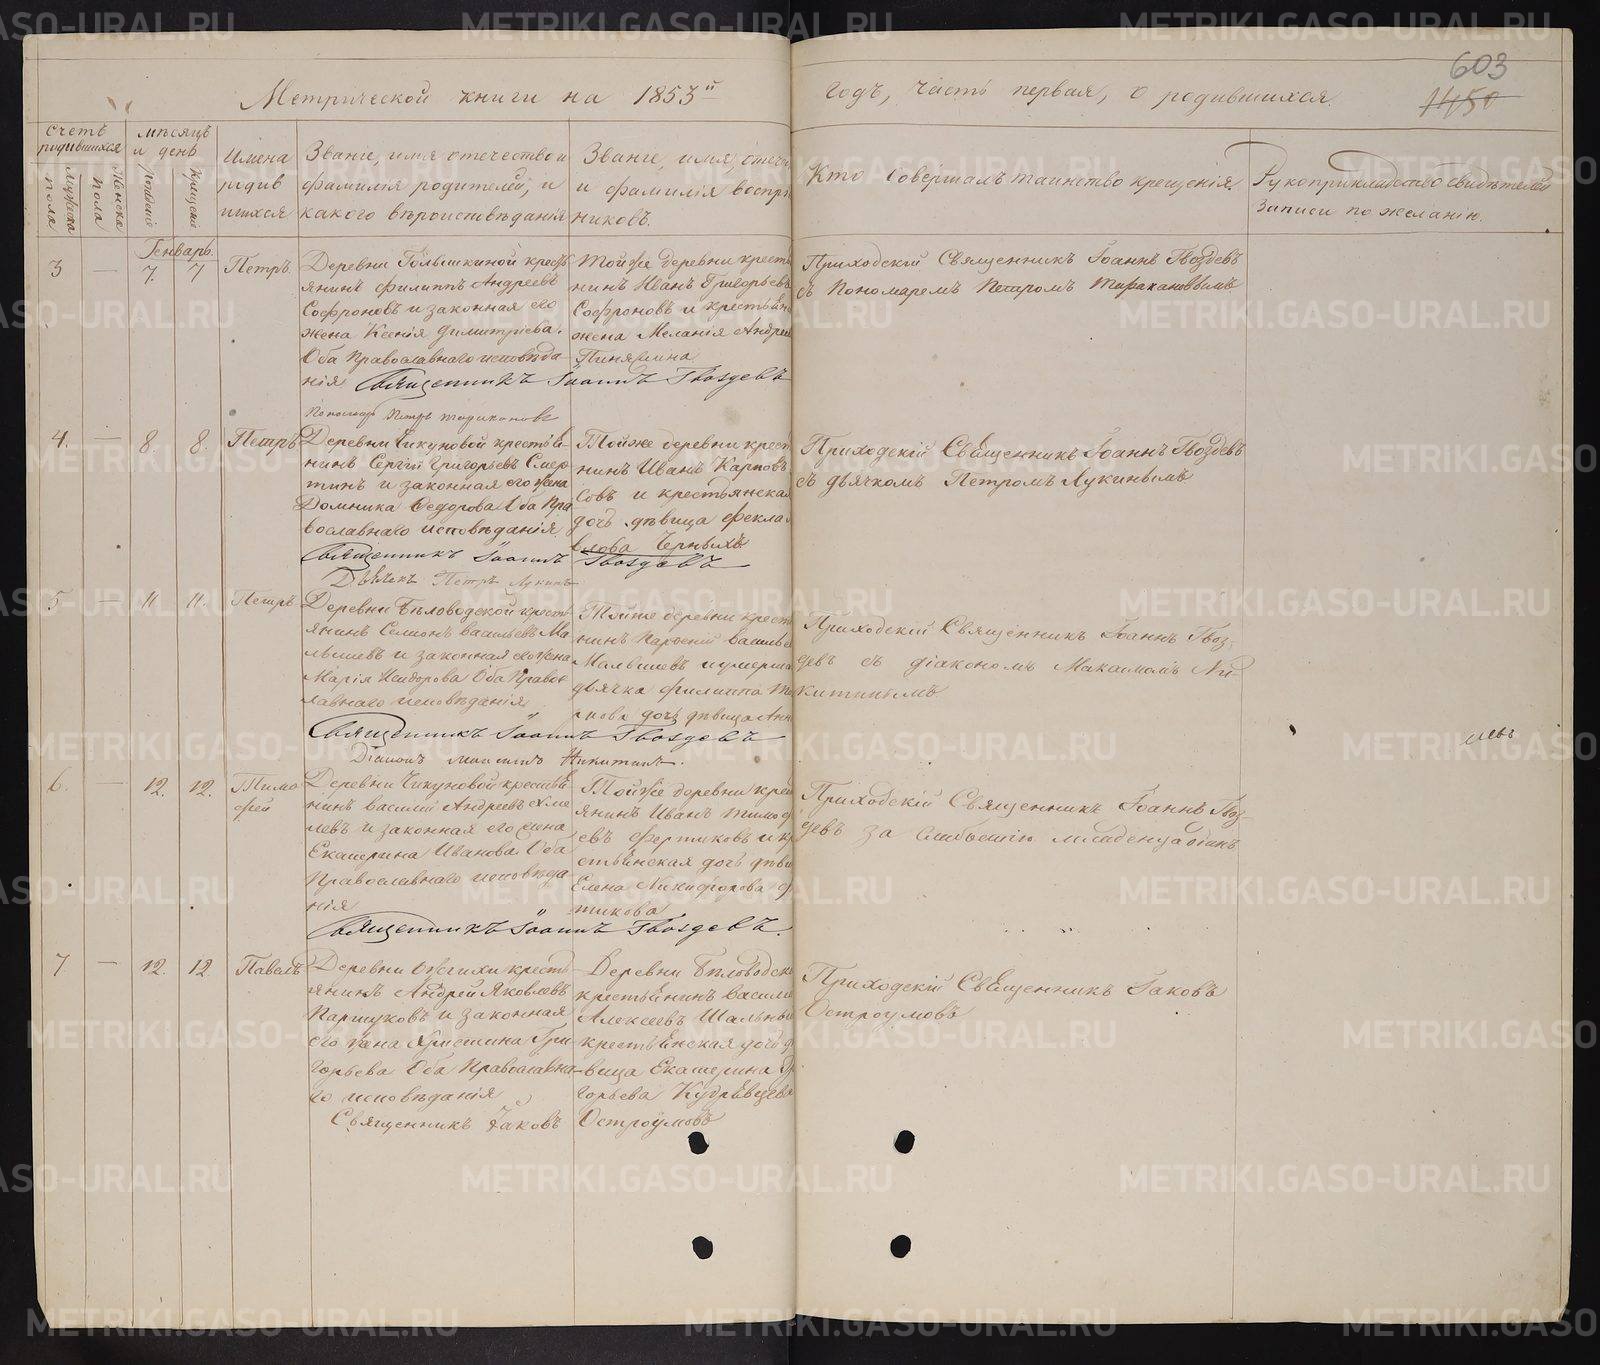 603
1450
Метрической книги на 1853й
годъ, часть первая, о родившихся.
счетъ родившихся
Мужска пола
Женска пола
мѣсяцъ и день
рожденіе
крещеніе
Имена родив шихся
Званіе, имя отечество и фамилія родителей, и какого вѣроисповѣданія
Званіе, имя, отече и фамилія воспрі никовъ.
Кто совершалъ таинство крещенія
Рукоприкладство свидѣтелей записи по желанію.
Генварь.
3 — 7. 7 Петръ.
Деревни кресть
янинъ Филиппъ Андреевъ
Софроновъ и законная его
жена Ксенія Димитріева.
Оба Православнаго исповѣда
нія Священникъ Іоаннъ Гвоздевъ
Пономарь Петръ
Той же деревни кресть
нинъ Иванъ Григорьевъ
Софроновъ и крестьян
жена Меланія Андрее
Приходскій Священникъ Іоаннъ Гвоздевъ
съ Пономаремъ Петромъ
4. — 8. 8. Петръ
Деревни Чикуновой крестья
нинъ Сергій Григорьевъ Смер
тинъ и законная его жена
Домника Федорова Оба Пра
вославнаго исповѣданія
Священникъ Іоаннъ Гвоздевъ
Дьячекъ Петръ Лукинъ
Той же деревни крест
нинъ Иванъ Карповъ
совъ и крестьянская
дочь дѣвица Фекла
Черныхъ
Приходскій Священникъ Іоаннъ Гвоздевъ
съ дьячкомъ Петромъ Лукинымъ
5 — 11 11. Петръ
Деревни Бѣловодской кресть
янинъ Семіонъ Васильевъ Ма
лышевъ и законная его жена
Марія Исидорова Оба Правос
лавнаго исповѣданія
Священникъ Іоаннъ Гвоздевъ
Діаконъ Максимъ Никитинъ.
Той же деревни кресть
нинъ Васильев
Малышевъ и умерша
дьячка Филиппа
дочь дѣвица Анн
Приходскій Священникъ Іоаннъ Гвоз-
девъ съ діакономъ Максимомъ Ни-
китинымъ
6. — 12. 12. Тимо
фей
Деревни Чикуновой крестья
нинъ Василій Андреевъ Хме
левъ и законная его жена
Екатерина Иванова Оба
Православнаго исповѣда
нія
Священникъ Іоаннъ Гвоздевъ.
Той же деревни крес
янинъ Иванъ Тимоф
евъ Фертиковъ и кр
естьянская дочь дѣви
Елена Никифорова Ф
тикова
Приходскій Священникъ Іоаннъ Гвоз-
девъ за слабостію младенца одинъ
7 — 12. 12 Павелъ
Деревни кресть
янинъ Андрей Яковлевъ
Паршуковъ и законная
его жена Христина Гри
горьева Оба Православна
го исповѣданія
Священникъ Іаковъ Остроумовъ
Деревни Бѣловодско
крестьянинъ Васили
Алексеевъ Шальны
крестьянская дочь д
вица Екатерина
горьева Кудрявцева
Приходскій Священникъ Іаковъ
Остроумовъ
METRIKI.GASO-URAL.RU